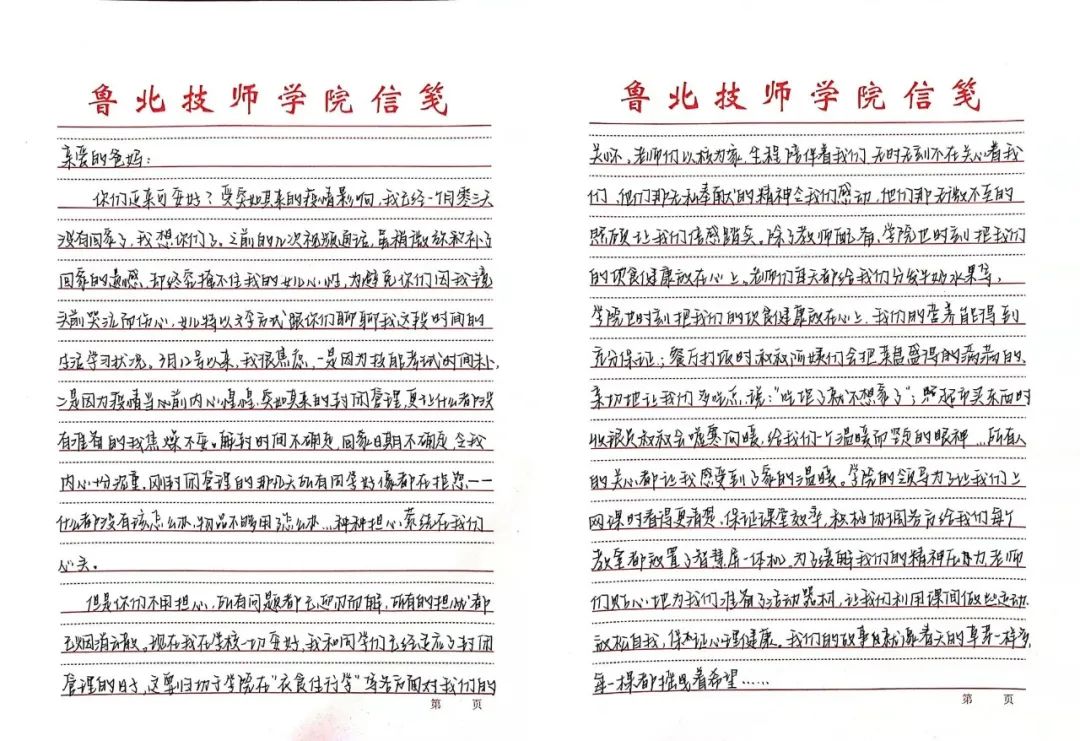 鲁北技师学院信笺
亲爱的爸妈：
你们近来可安好？受突如其来的疫情影响，我已经一个月零三天
没有回家了，我想你们了。之前的几次视频通话，虽稍微弥补了
回家的遗憾，却终究掩不住我的女儿心性，为避免你们因我镜
头前哭泣而伤心，女儿特以文字方式跟你们聊聊我这段时间的
生活学习状况。3月12号以来，我很焦虑，一是因为技能考试时间未卜，
二是因为疫情当前内心惶惶，突如其来的封闭管理，更让什么都没
有准备的我焦燥不安。解封时间不确定，回家日期不确定，令我
内心十分沉重，刚封闭管理的那几天所有同学好像都在抱怨——
什么都没有该怎么办，物品不够用了怎么办…种种担心萦绕在我们
心头。
但是你们不用担心，所有问题都已迎刃而解，所有的担忧都
已烟消云散。现在我在学校一切安好，我和同学们已经适应了封闭
管理的日子，这要归功于学院在“衣食住行学”等各方面对我们的
第 页
鲁北技师学院信笺
关怀，老师们以校为家，全程陪伴着我们，无时无刻不在关心着我
们，他们那无私奉献的精神令我们感动，他们那无微不至的
照顾让我们倍感踏实。除了教师配备，学院也时刻把我们
的饮食健康放在心上。老师们每天都给我们分发牛奶水果等，
学院也时刻把我们的饮食健康放在心上，我们的营养能得到
充分保证；餐厅打饭时叔叔阿姨们会把菜昌盛得的满满的，
亲切地让我们多吃点，说：“吃饱了就不想家了”；照超市买东西时
收银员叔叔会嘘寒问暖，给我们一个温暖而坚定的眼神…所有人
的关心都让我感受到了家的温暖。学院的领导为了让我们上
网课时看得更清楚，保证课堂效率，积极协调各方给我们每个
教室都放置了智慧屏一体机，为了缓解我们的精神压力，老师
们贴心地为我们准备了活动器材，让我们利用课间做些运动，
放松自我，保证心理健康。我们的故事就像春天的草芽一样多，
每一棵都摇曳着希望……
第 页